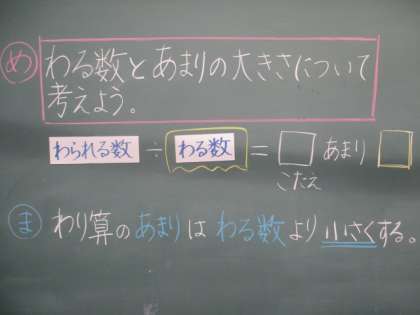 め わる数とあまりの大きさについて
考えよう。
わられる数 ÷ わる数 = □ あまり □
こたえ
ま わり算のあまりは わる数より 小さくする。